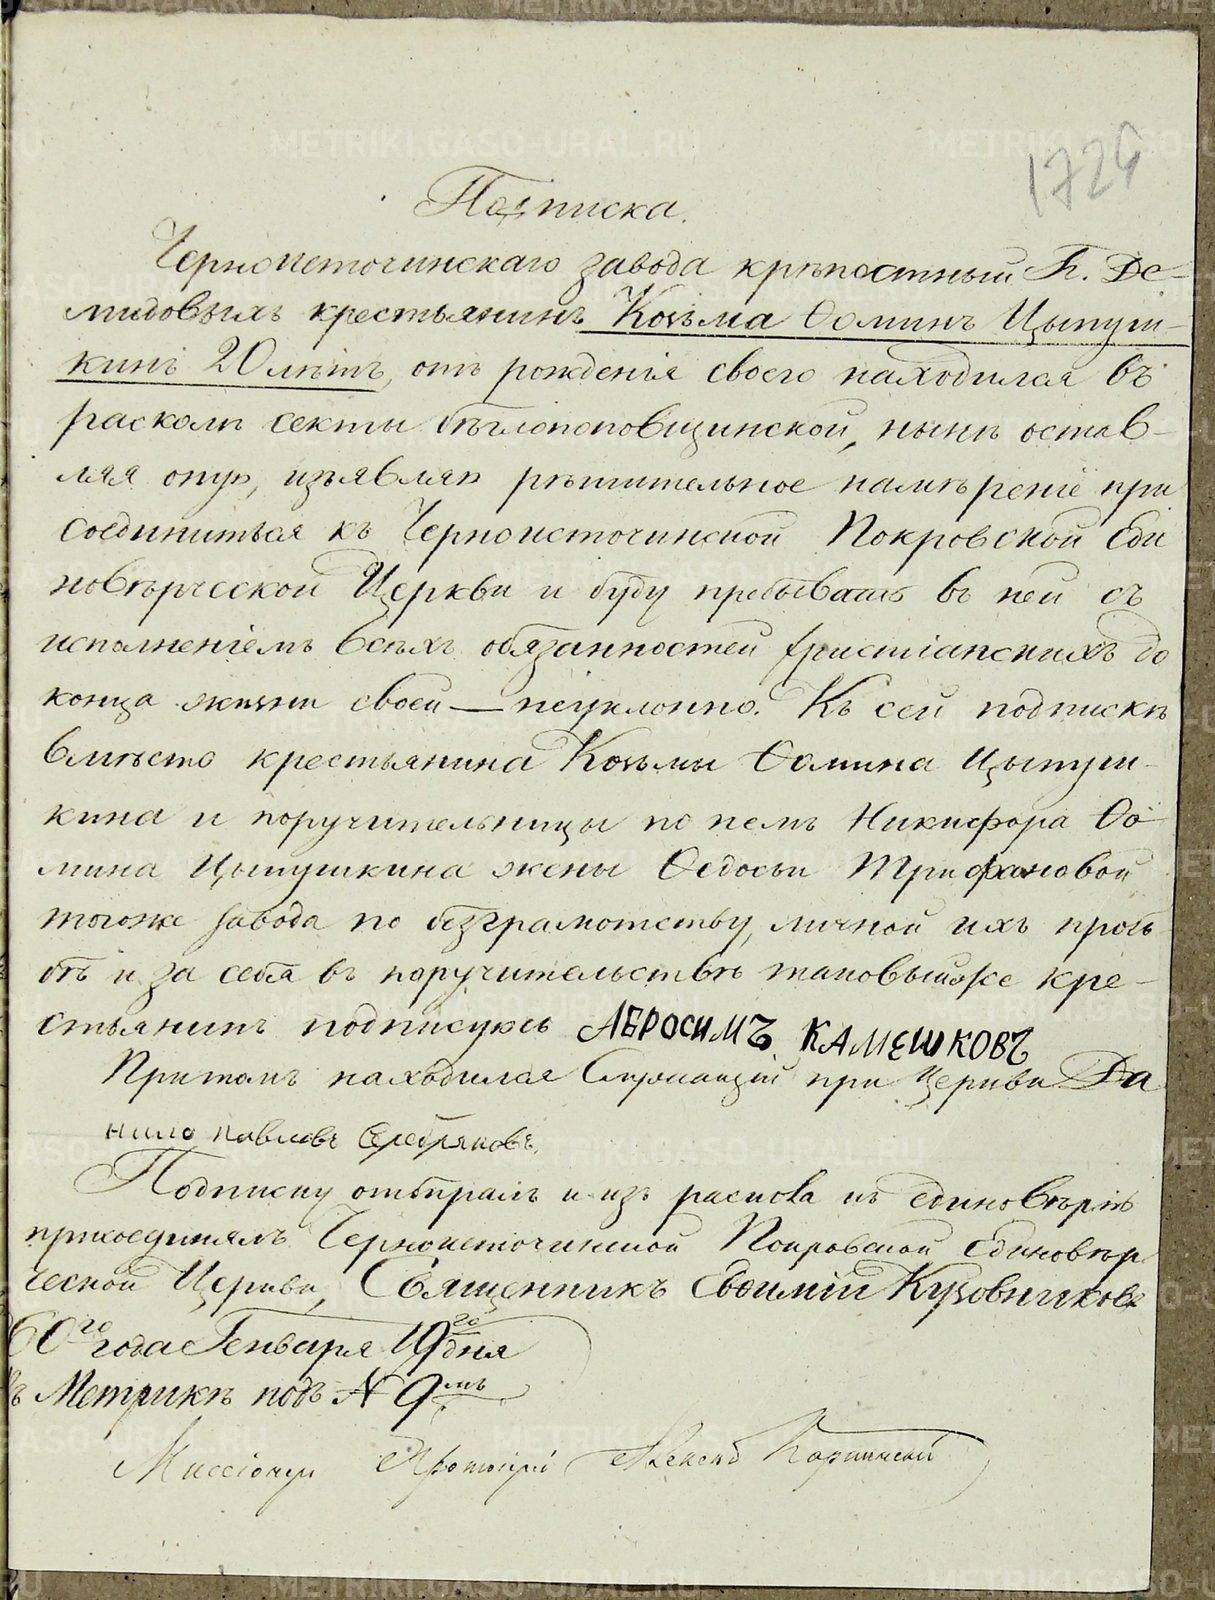 1724
Подписка.
Черноисточинскаго завода крѣпостный Г. Де-
мидовыхъ крестьянинъ Козьма Ѳоминъ Цыпуш-
кинъ 20 лѣтъ, отъ рожденія своего находился въ
расколѣ секты бѣглопоповщинской, нынѣ остав-
ляя оную, изъявляю рѣшительное намѣреніе при
соединиться къ Черноисточинской Покровской Еди
новѣрческой Церкви и буду пребывать въ ней съ
исполненіемъ всѣхъ обязанностей христіанскихъ до
конца жизни своей — неуклонно. Къ сей подпискѣ
вмѣсто крестьянина Козьмы Ѳомина Цыпуш-
кина и поручительницы по немъ Никифора Ѳо
мина Цыпушкина жены Ѳедосьи Трифановой
тогоже завода по безграмотству, личной ихъ прозь
бѣ и за себя въ поручительствѣ таковыйже кре-
стьянинъ подписуюсь АБРОСИМЪ КАМЕШКОВЪ
Притомъ находился при Церкви Да
нило Павловъ Серебряковъ.
Подписку отбиралъ и изъ раскола къ единовѣрію
присоединялъ Черноисточинской Покровской Единовѣр
ческой Церкви, Священникъ Евѳимій Кузовниковъ
60го года Генваря 19го дня
въ Метрикѣ подъ № 9мъ
Миссіонеръ Протоіерей